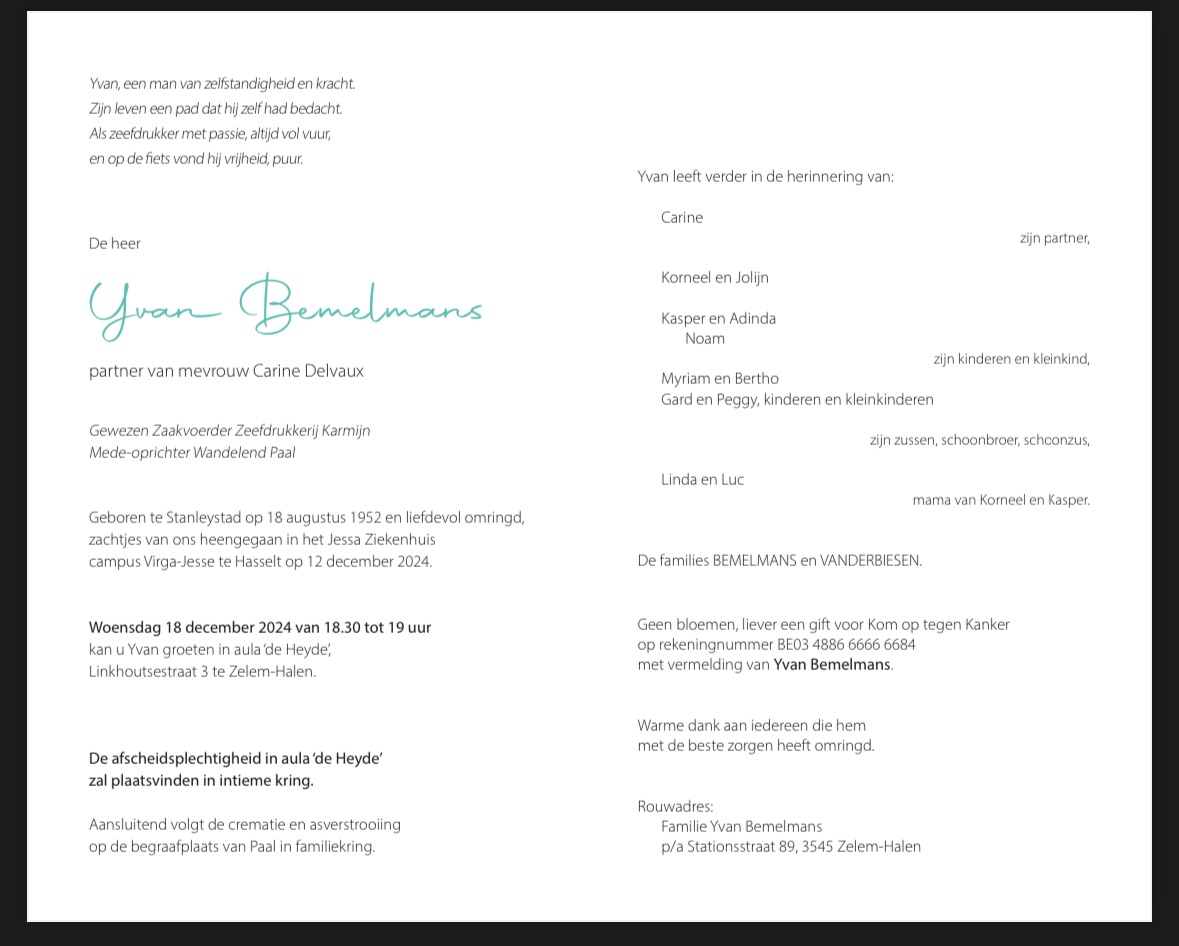 Yvan, een man van zelfstandigheid en kracht.
Zijn leven een pad dat hij zelf had bedacht.
Als zeefdrukker met passie, altijd vol vuur,
en op de fiets vond hij vrijheid, puur.
De heer
Yvan Bemelmans
partner van mevrouw Carine Delvaux
Gewezen Zaakvoerder Zeefdrukkerij Karmijn
Mede-oprichter Wandelend Paal
Geboren te Stanleystad op 18 augustus 1952 en liefdevol omringd,
zachtjes van ons heengegaan in het Jessa Ziekenhuis
campus Virga-Jesse te Hasselt op 12 december 2024.
Woensdag 18 december 2024 van 18.30 tot 19 uur
kan u Yvan groeten in aula ‘de Heyde’,
Linkhoutsestraat 3 te Zelem-Halen.
De afscheidsplechtigheid in aula ‘de Heyde’
zal plaatsvinden in intieme kring.
Aansluitend volgt de crematie en asverstrooiing
op de begraafplaats van Paal in familiekring.
Yvan leeft verder in de herinnering van:
Carine
zijn partner,
Korneel en Jolijn
Kasper en Adinda
Noam
zijn kinderen en kleinkind,
Myriam en Bertho
Gard en Peggy, kinderen en kleinkinderen
zijn zussen, schoonbroer, schconzus,
Linda en Luc
mama van Korneel en Kasper.
De families BEMELMANS en VANDERBIESEN.
Geen bloemen, liever een gift voor Kom op tegen Kanker
op rekeningnummer BE03 4886 6666 6684
met vermelding van Yvan Bemelmans.
Warme dank aan iedereen die hem
met de beste zorgen heeft omringd.
Rouwadres:
Familie Yvan Bemelmans
p/a Stationsstraat 89, 3545 Zelem-Halen